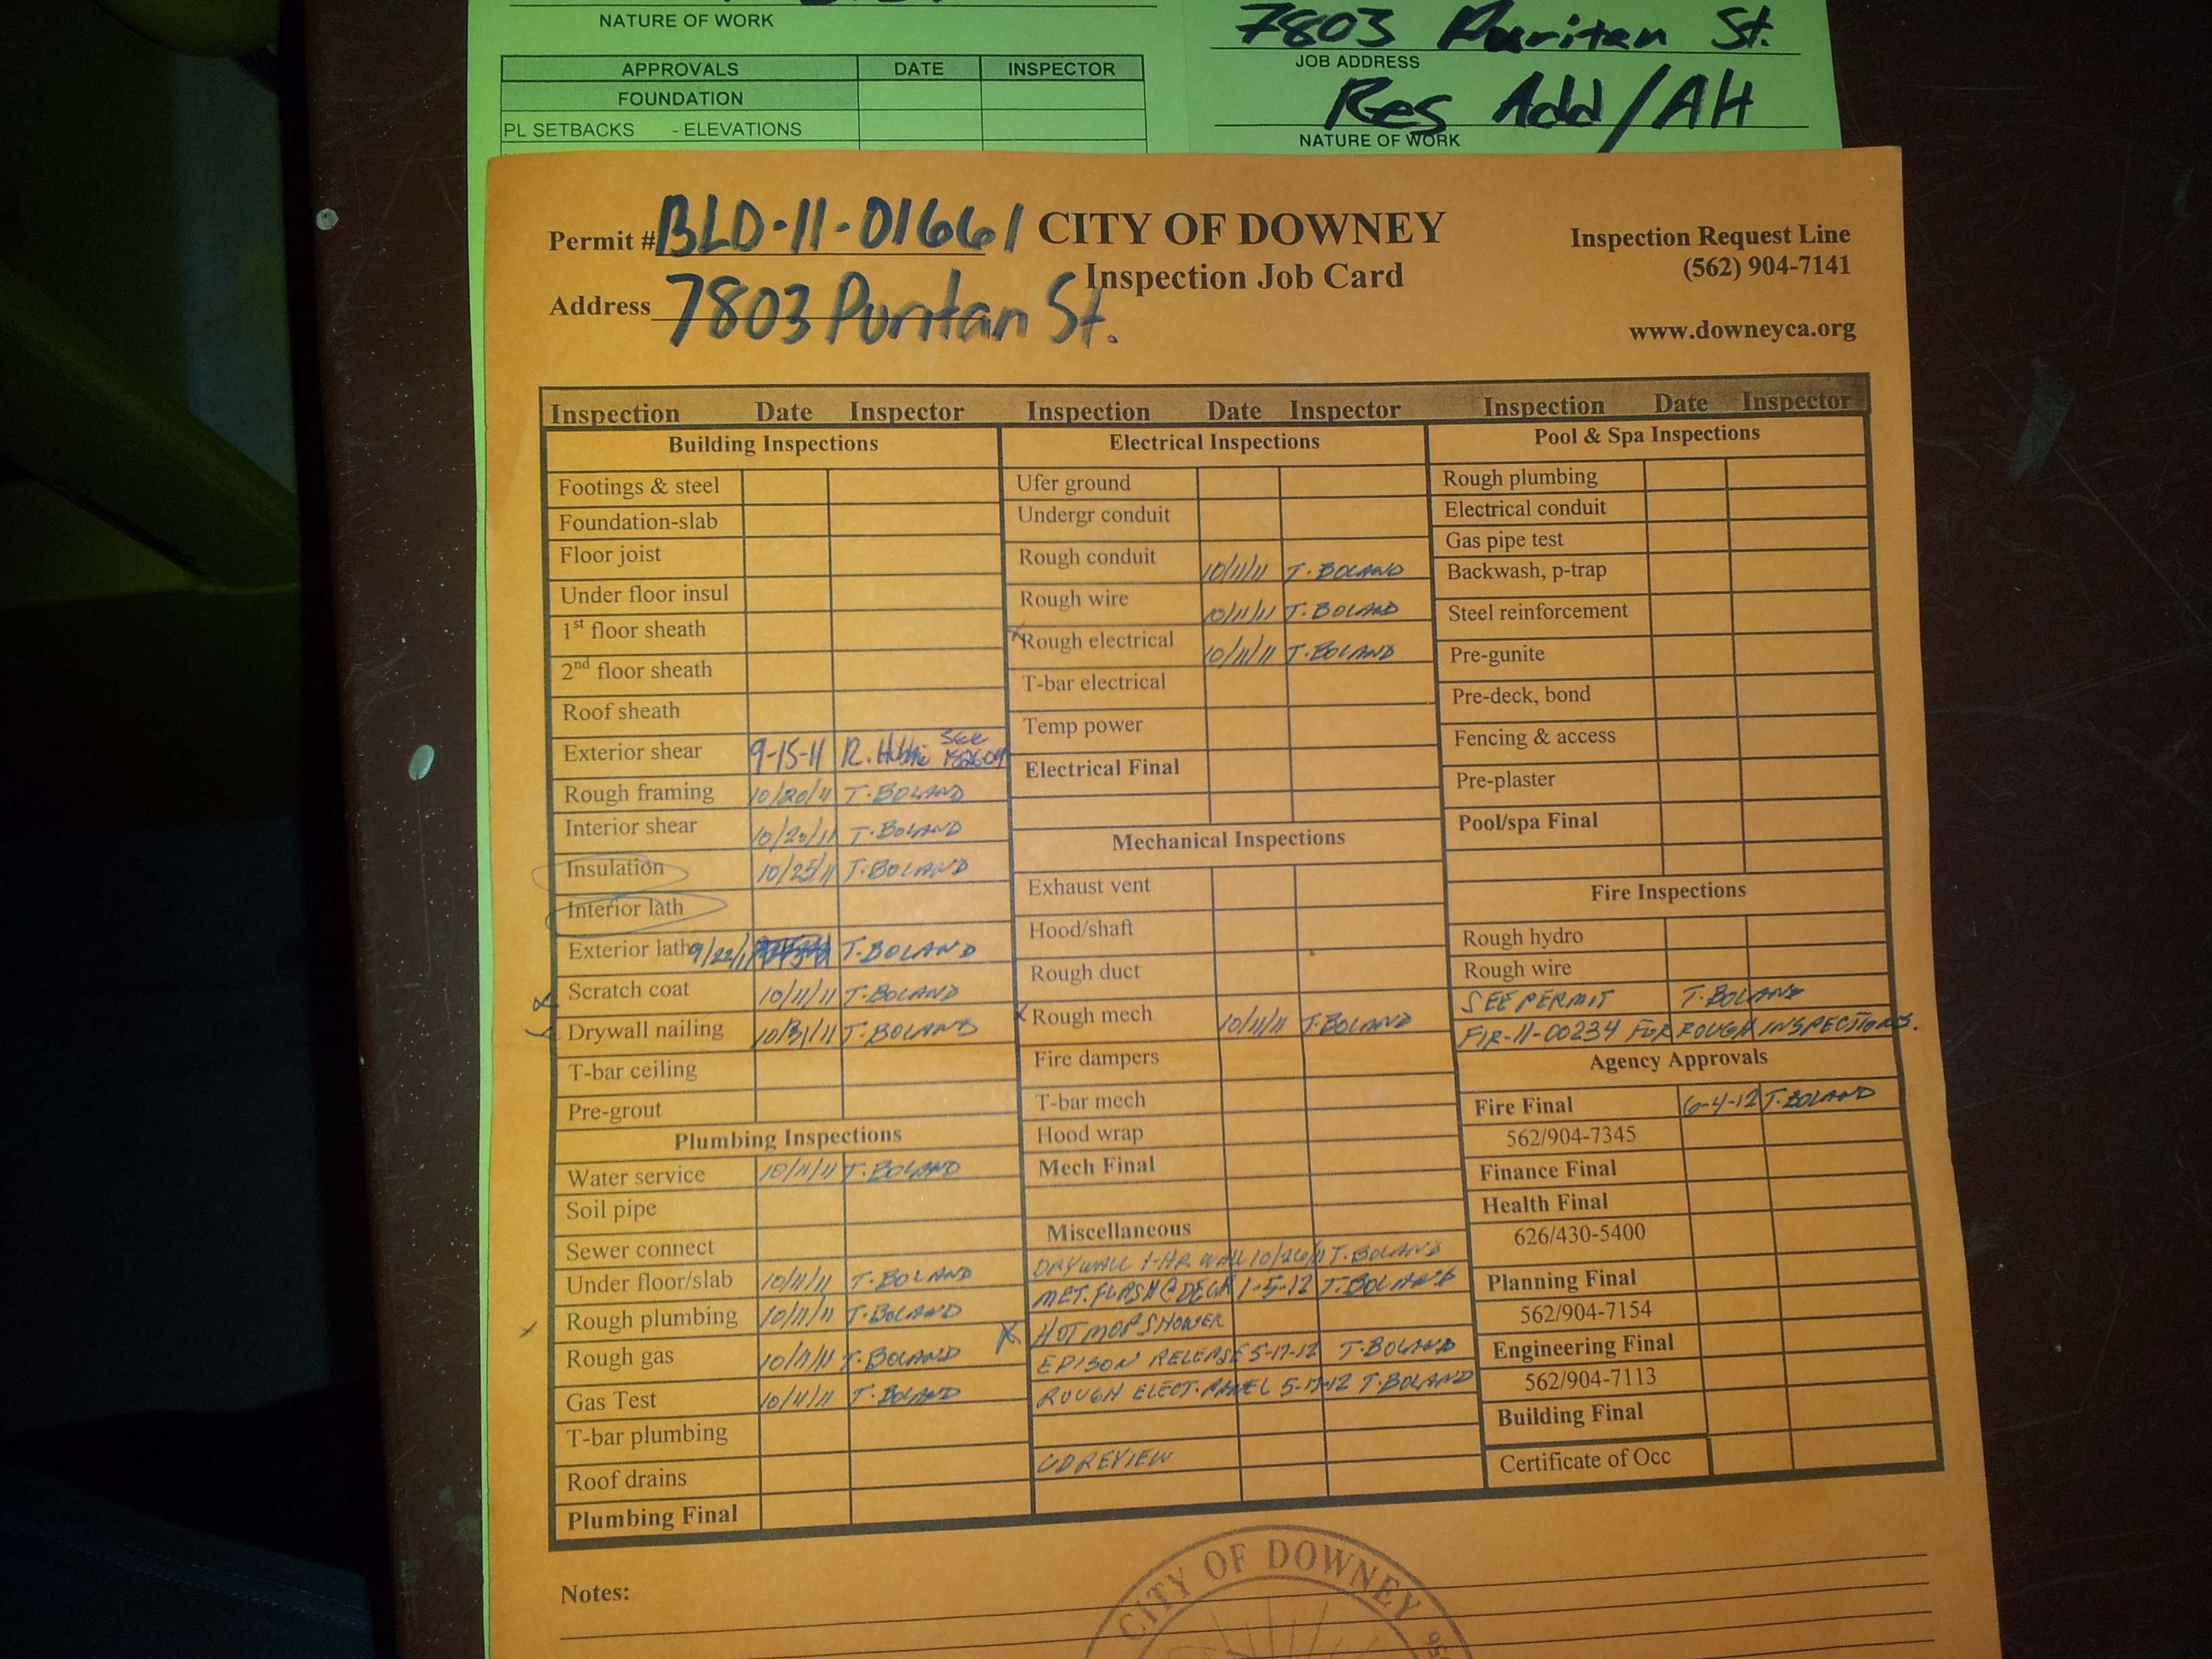 NATURE OF WORK
APPROVALS DATE INSPECTOR
FOUNDATION
PL SETBACKS - ELEVATIONS
7803 Puritan St.
JOB ADDRESS
Res Add/AH
NATURE OF WORK
Permit # BLD-11-01661 CITY OF DOWNEY
Inspection Job Card
Address 7803 Puritan St.
Inspection Request Line
(562) 904-7141
www.downeyca.org
Inspection Date Inspector Inspection Date Inspector Inspection Date Inspector
Building Inspections
Footings & steel
Foundation-slab
Floor joist
Under floor insul
1st floor sheath
2nd floor sheath
Roof sheath
Exterior shear 9-15-11 R. See
Rough framing 10/20/11 T. BOLAND
Interior shear 10/20/11 T. BOLAND
Insulation 10/25/11 T. BOLAND
Interior lath
Exterior lath 9/22/11 T. BOLAND
Scratch coat 10/11/11 T. BOLAND
Drywall nailing 10/31/11 T. BOLAND
T-bar ceiling
Pre-grout
Plumbing Inspections
Water service 10/11/11 T. BOLAND
Soil pipe
Sewer connect
Under floor/slab 10/11/11 T. BOLAND
Rough plumbing 10/11/11 T. BOLAND
Rough gas 10/11/11 T. BOLAND
Gas Test 10/11/11 T. BOLAND
T-bar plumbing
Roof drains
Plumbing Final
Electrical Inspections
Ufer ground
Undergr conduit
Rough conduit 10/11/11 T. BOLAND
Rough wire 10/11/11 T. BOLAND
x Rough electrical 10/11/11 T. BOLAND
T-bar electrical
Temp power
Electrical Final
Mechanical Inspections
Exhaust vent
Hood/shaft
Rough duct
x Rough mech 10/11/11 T. BOLAND
Fire dampers
T-bar mech
Hood wrap
Mech Final
Miscellaneous
DRYWALL 1-HR WALL 10/26/11 T. BOLAND
MET. FLASH @ DECK 1-5-12 T. BOLAND
x HOT MOP SHOWER
EDISON RELEASE 5-17-12 T. BOLAND
ROUGH ELECT. PANEL 5-17-12 T. BOLAND
CD REVIEW
Pool & Spa Inspections
Rough plumbing
Electrical conduit
Gas pipe test
Backwash, p-trap
Steel reinforcement
Pre-gunite
Pre-deck, bond
Fencing & access
Pre-plaster
Pool/spa Final
Fire Inspections
Rough hydro
Rough wire
SEE PERMIT T. BOLAND
FIR-11-00234 FOR ROUGH INSPECTIONS.
Agency Approvals
Fire Final 6-4-12 T. BOLAND
562/904-7345
Finance Final
Health Final
626/430-5400
Planning Final
562/904-7154
Engineering Final
562/904-7113
Building Final
Certificate of Occ
Notes:
CITY OF DOWNEY